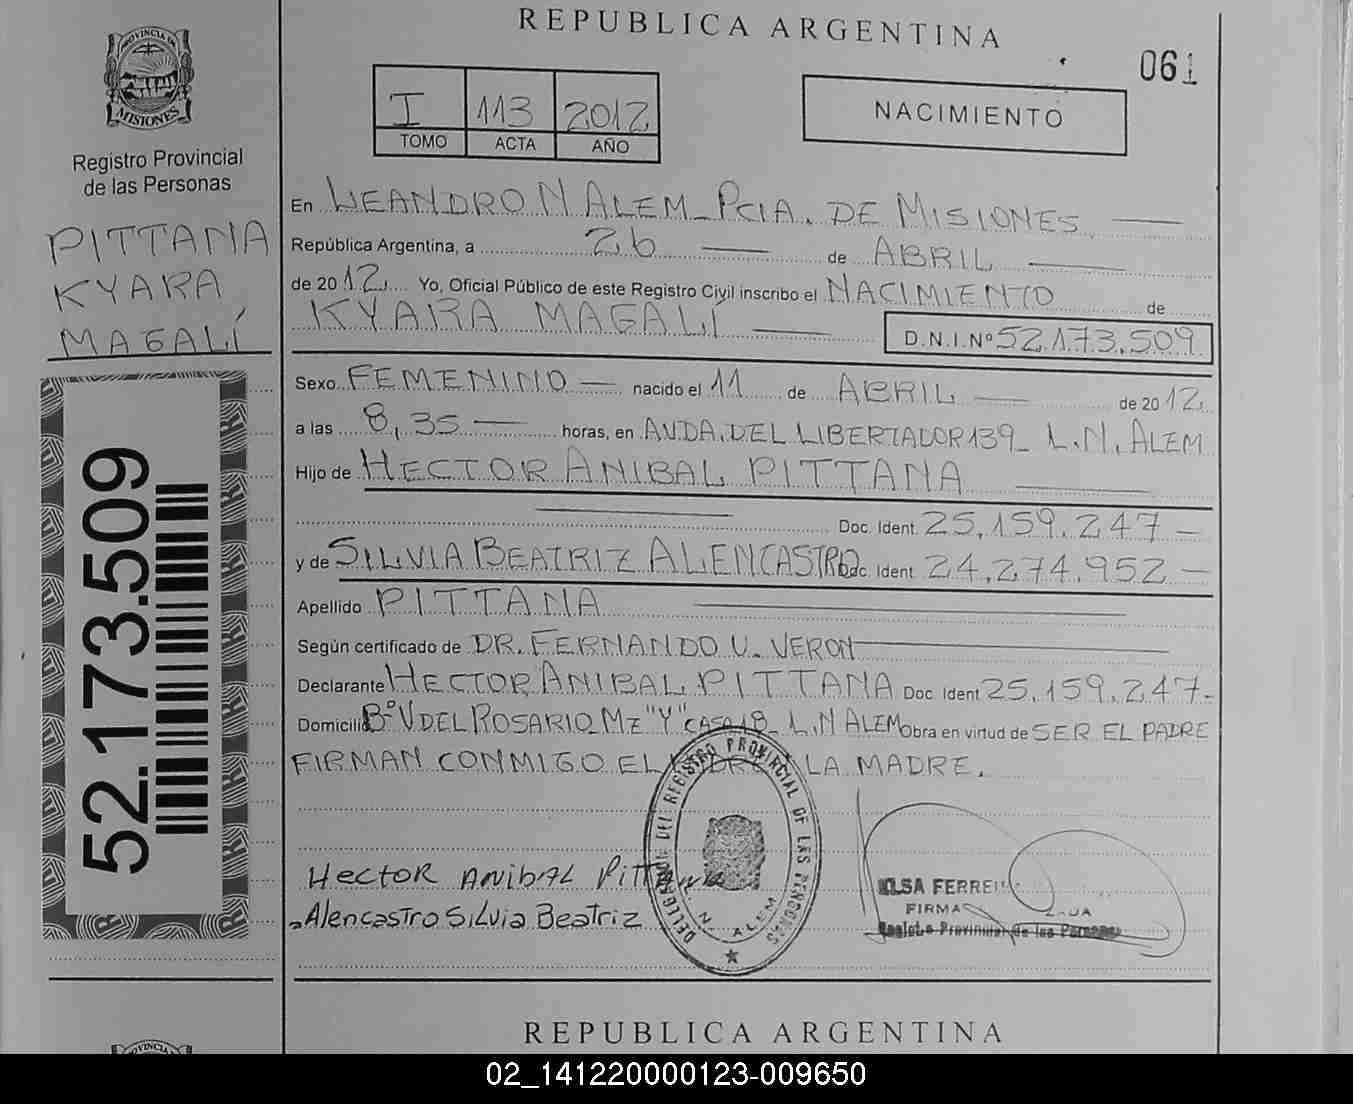 REPUBLICA ARGENTINA
061
PROVINCIA DE
MISIONES
Registro Provincial
de las Personas
PITTANA
KYARA
MAGALÍ
52.173.509
I 113 2012
TOMO ACTA AÑO
NACIMIENTO
En LEANDRO N ALEM - PCIA. DE MISIONES
República Argentina, a 26 de ABRIL
de 2012 Yo, Oficial Público de este Registro Civil inscribo el NACIMIENTO de
KYARA MAGALÍ D.N.I.Nº 52.173.509
Sexo FEMENINO nacido el 11 de ABRIL de 2012
a las 8,35 horas, en AVDA. DEL LIBERTADOR 139 - L.N. ALEM
Hijo de HECTOR ANIBAL PITTANA
Doc. Ident. 25.159.247 -
y de SILVIA BEATRIZ ALENCASTRO Doc. Ident. 24.274.952 -
Apellido PITTANA
Según certificado de DR. FERNANDO U. VERON
Declarante HECTOR ANIBAL PITTANA Doc Ident 25.159.247-
Domicilio Bº V DEL ROSARIO - MZ "Y" CASA 18 - L.N ALEM Obra en virtud de SER EL PADRE
FIRMAN CONMIGO EL PADRE LA MADRE.
DELEGACION DEL REGISTRO PROVINCIAL DE LAS PERSONAS
N. ALEM
Hector Anibal Pittana
Alencastro Silvia Beatriz
FIRMA
Registro Provincial de las Personas
REPUBLICA ARGENTINA
02_141220000123-009650